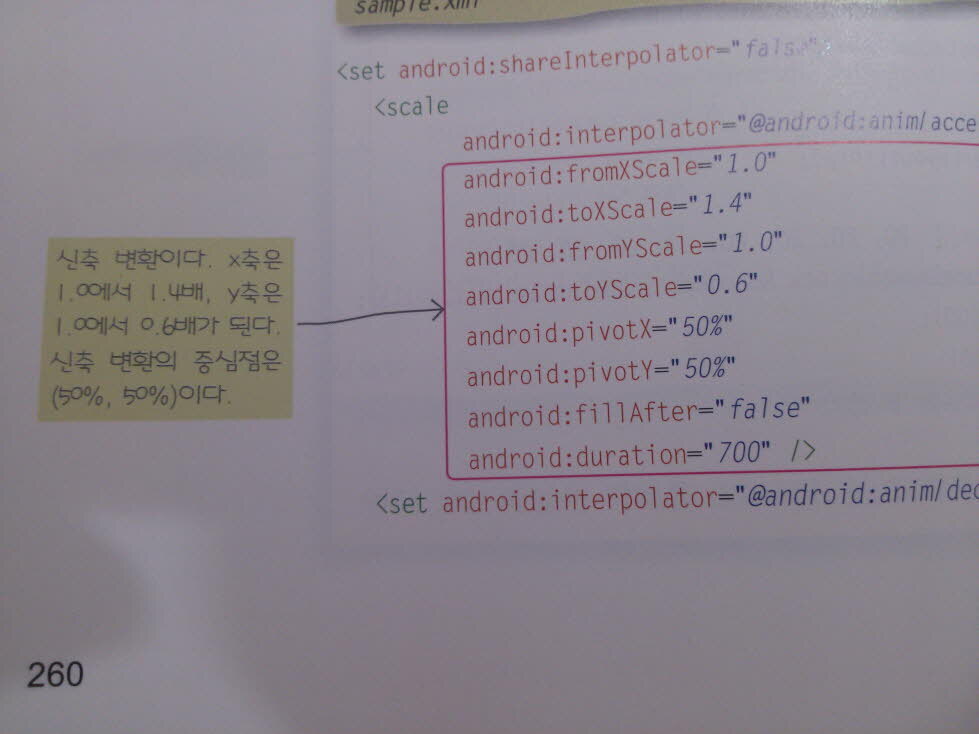 sample.xml
<set android:shareInterpolator="false"
<scale
android:interpolator="@android:anim/acce
android:fromXScale="1.0"
android:toXScale="1.4"
android:fromYScale="1.0"
android:toYScale="0.6"
android:pivotX="50%"
android:pivotY="50%"
android:fillAfter="false"
android:duration="700" />
<set android:interpolator="@android:anim/dec
신축 변환이다. x축은
1.0에서 1.4배, y축은
1.0에서 0.6배가 된다.
신축 변환의 중심점은
(50%, 50%)이다.
260